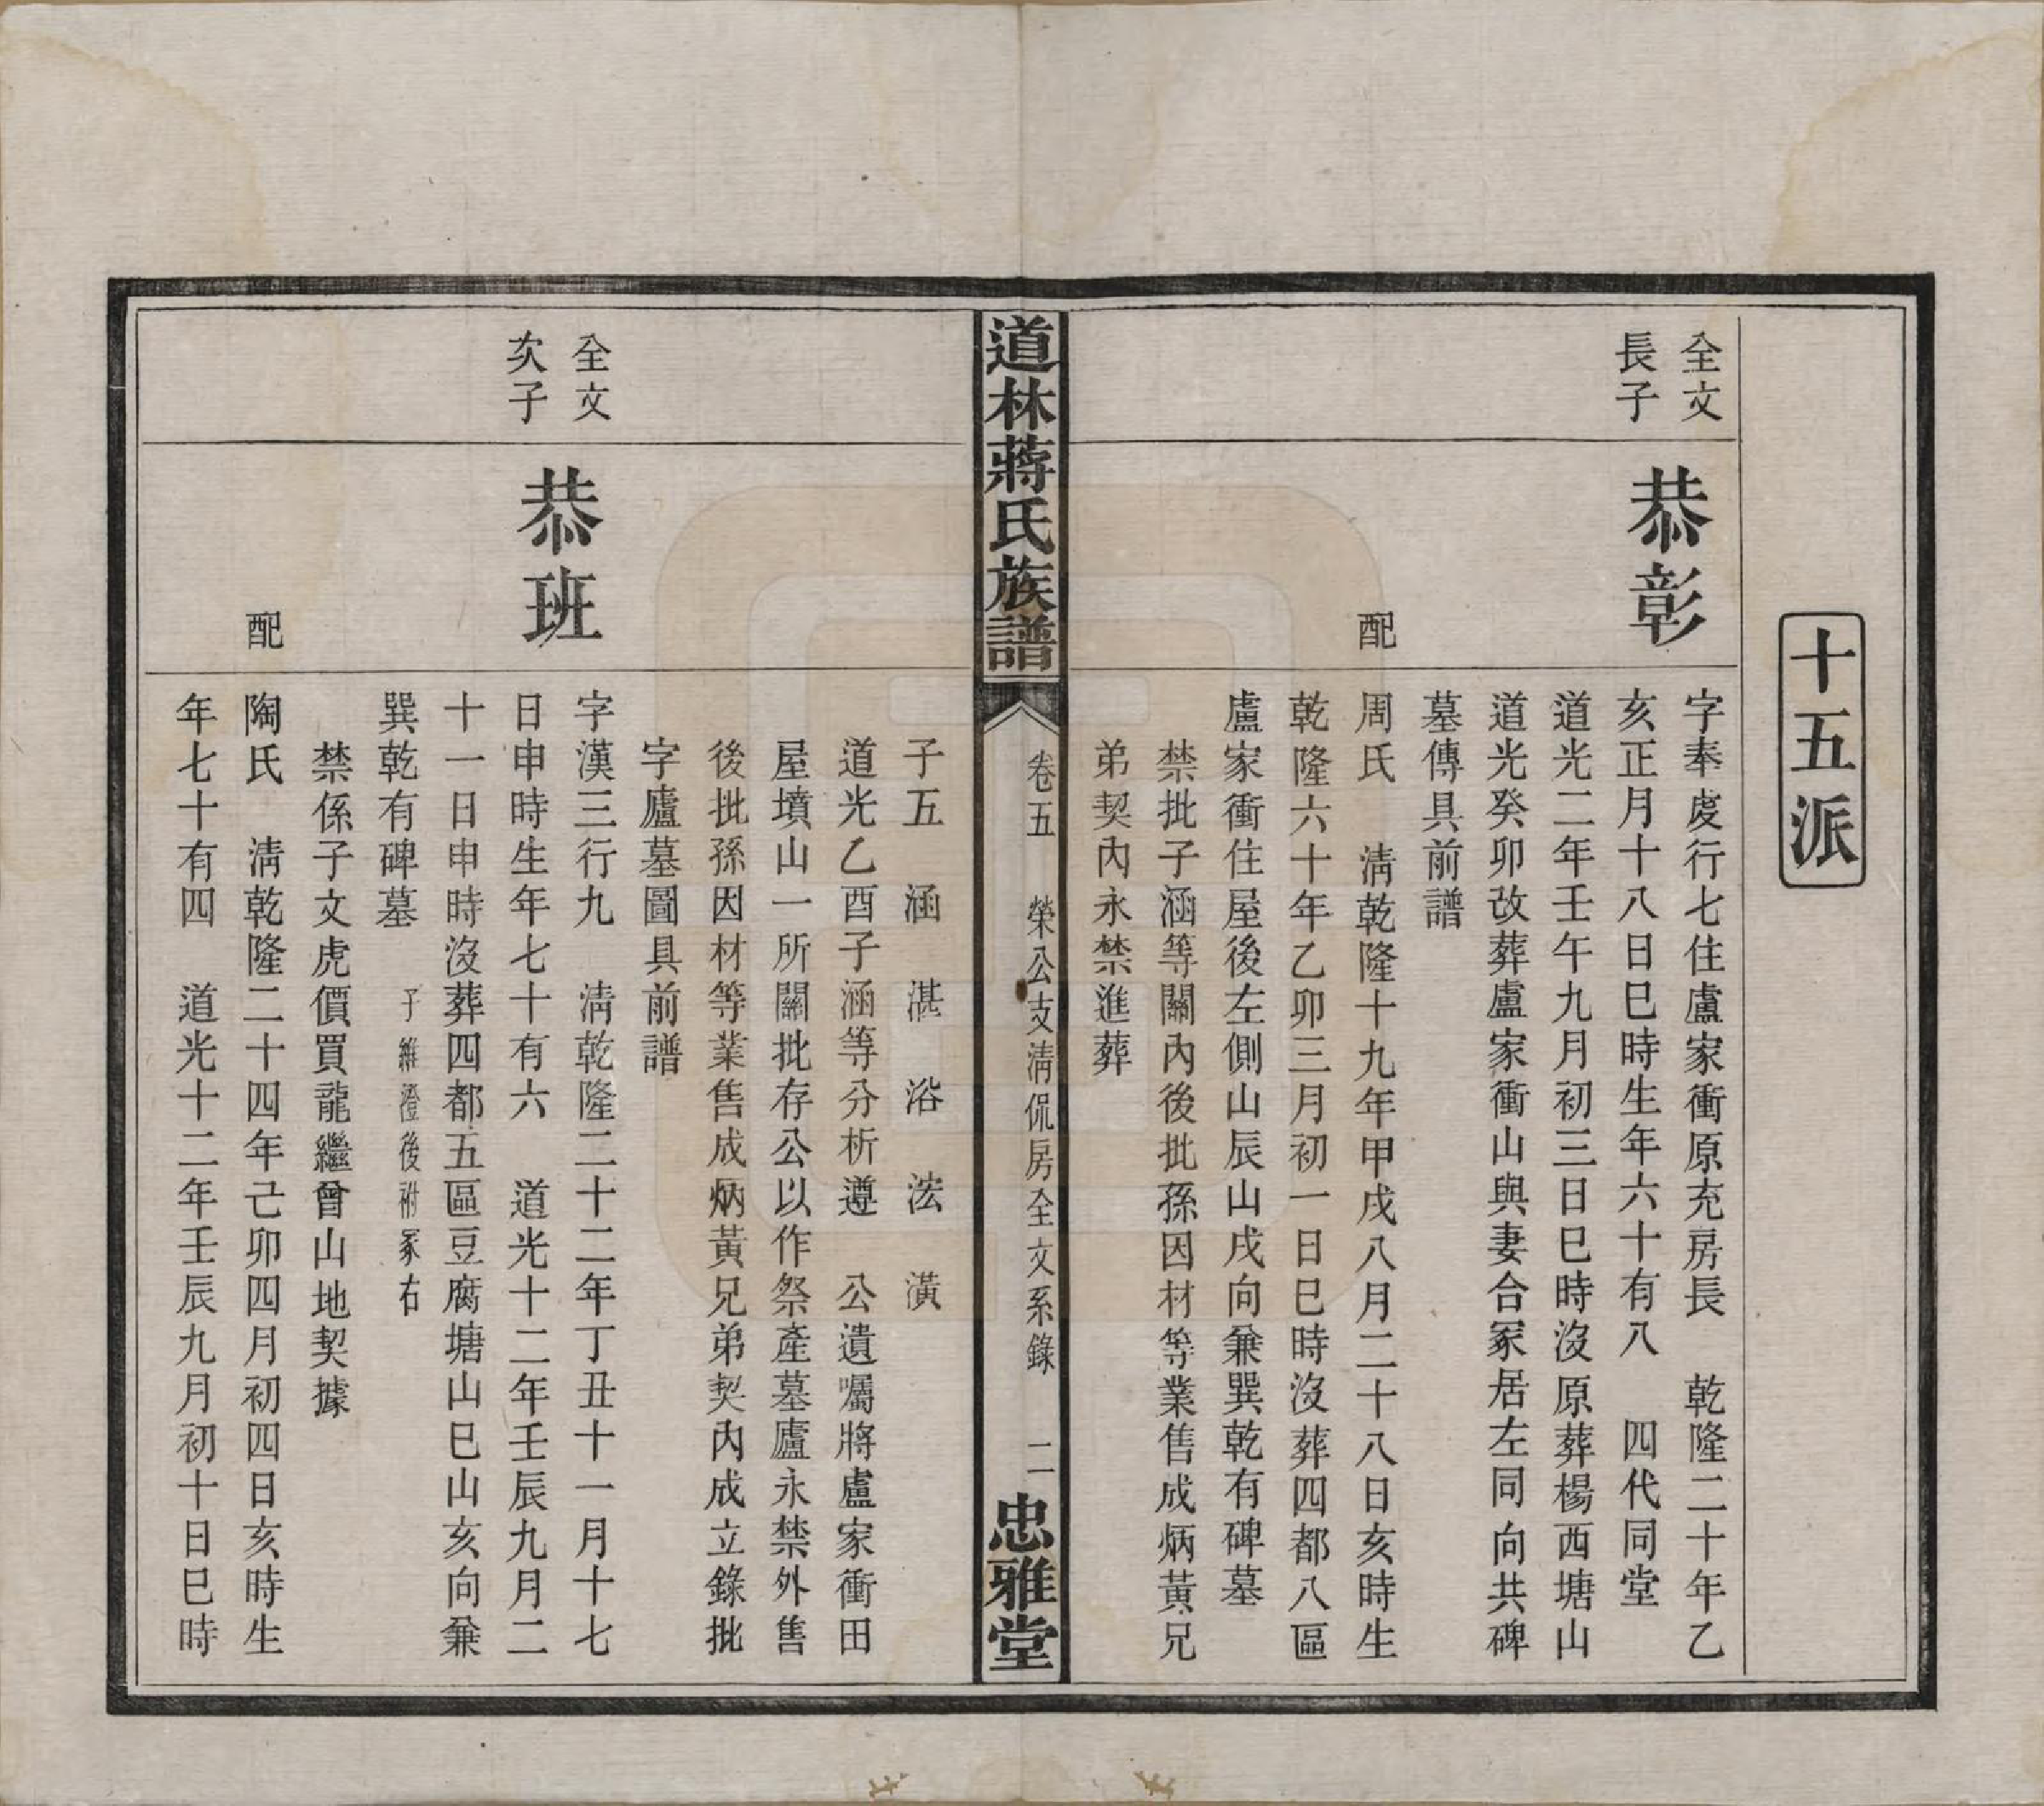 十五派
全文
長子
恭彰
字奉虔行七住盧家衝原充房長　乾隆二十年乙
亥正月十八日巳時生年六十有八　四代同堂
道光二年壬午九月初三日巳時沒原葬楊西塘山
道光癸卯改葬盧家衝山與妻合冢居左同向共碑
墓傳具前譜
配
周氏　淸乾隆十九年甲戌八月二十八日亥時生
乾隆六十年乙卯三月初一日巳時沒葬四都八區
盧家衝住屋後左側山辰山戌向兼巽乾有碑墓
禁批子涵等關內後批孫因材等業售成炳黃兄
弟契內永禁進葬
道林蔣氏族譜
卷五　榮公支淸侃房全文系錄　二
忠雅堂
子五　涵　湛　浴　浤　潢
道光乙酉子涵等分析遵　公遺囑將盧家衝田
屋墳山一所關批存公以作祭產墓廬永禁外售
後批孫因材等業售成炳黃兄弟契內成立錄批
字廬墓圖具前譜
全文
次子
恭班
字漢三行九　淸乾隆二十二年丁丑十一月十七
日申時生年七十有六　道光十二年壬辰九月二
十一日申時沒葬四都五區豆腐塘山巳山亥向兼
巽乾有碑墓　子繼澄後祔冢右
禁係子文虎價買龍繼曾山地契據
配
陶氏　淸乾隆二十四年己卯四月初四日亥時生
年七十有四　道光十二年壬辰九月初十日巳時